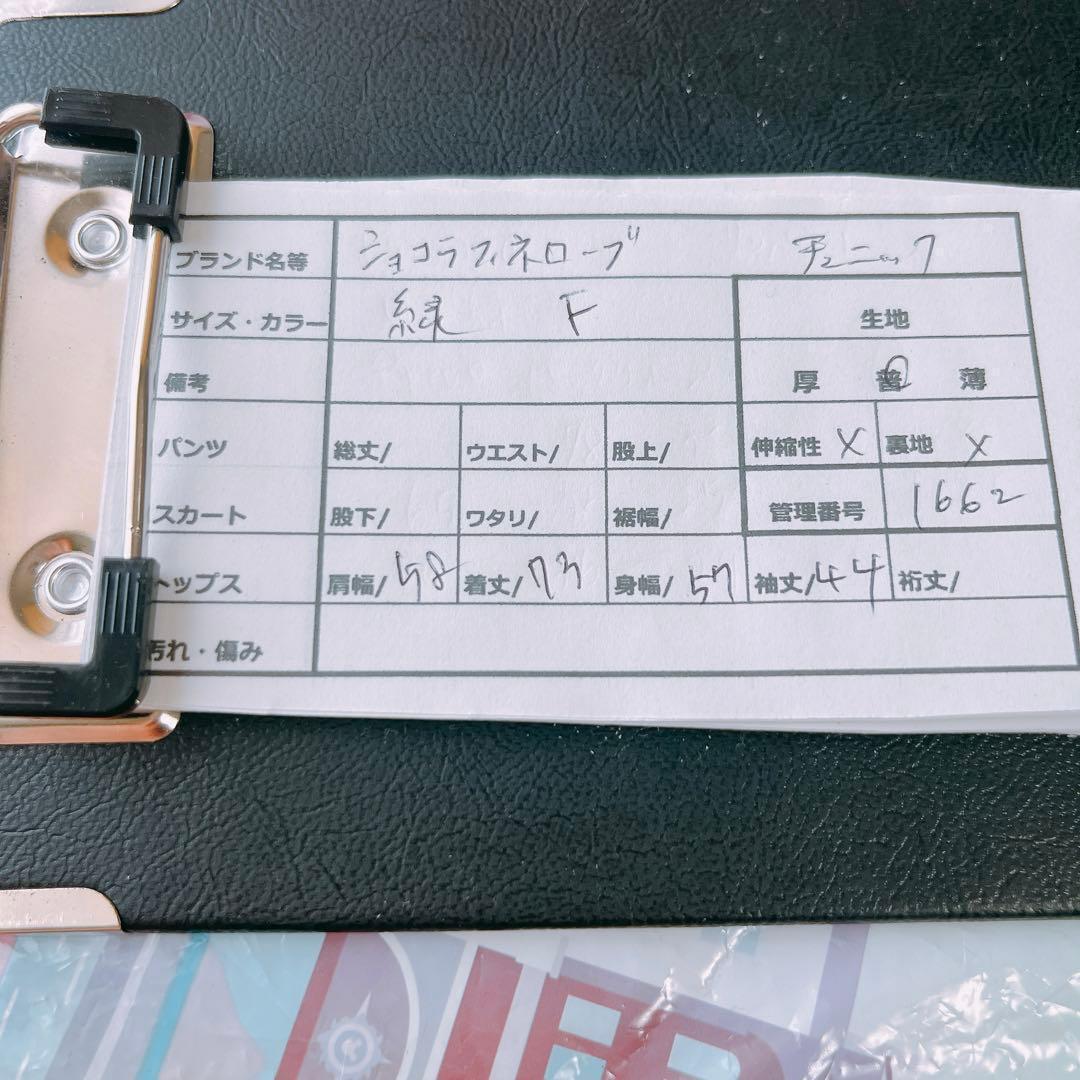 ブランド名等 ショコラフィネローブ チュニック
サイズ・カラー 緑 F 生地
備考 厚 普 薄
パンツ 総丈/ ウエスト/ 股上/ 伸縮性 X 裏地 X
スカート 股下/ ワタリ/ 裾幅/ 管理番号 1662
トップス 肩幅/58 着丈/73 身幅/57 袖丈/44 裄丈/
汚れ・傷み